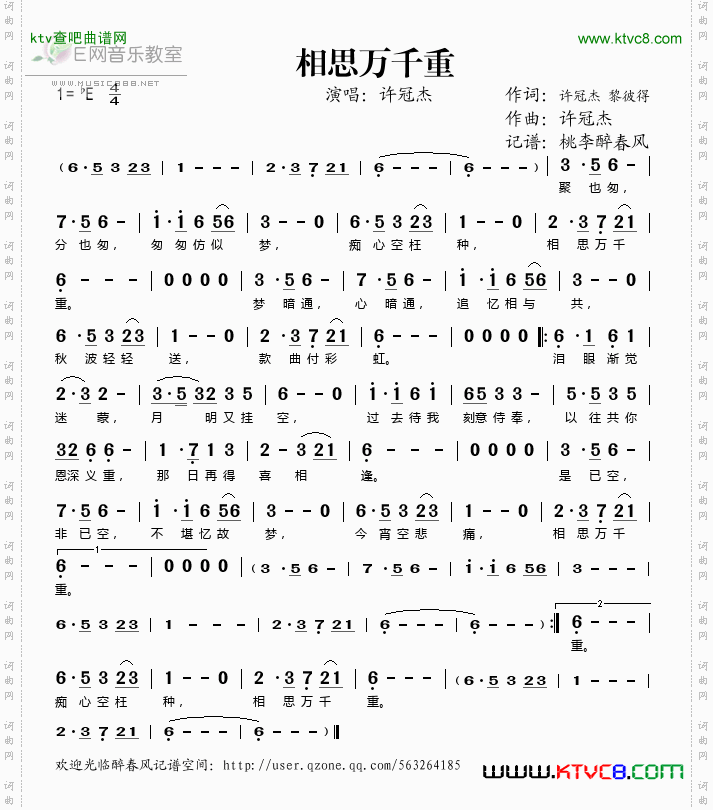 ktv查吧曲谱网
E网音乐教室
WWW.MUSIC888.NET
www.ktvc8.com
相思万千重
1=♭E 4/4
演唱：许冠杰
作词：许冠杰 黎彼得
作曲：许冠杰
记谱：桃李醉春风
(6·5 3 23 | 1 - - - | 2·3 7 21 | 6 - - - | 6 - - -) | 3 ·5 6 - |
聚 也 匆，
7·5 6 - | i·i 6 56 | 3 - - 0 | 6·5 3 23 | 1 - - 0 | 2 ·3 7 21 |
分 也 匆， 匆 匆 仿 似 梦， 痴 心 空 枉 种， 相 思 万 千
6 - - - | 0 0 0 0 | 3 ·5 6 - | 7 ·5 6 - | i ·i 6 56 | 3 - - 0 |
重。 梦 暗 通， 心 暗 通， 追 忆 相 与 共，
6 ·5 3 23 | 1 - - 0 | 2 ·3 7 21 | 6 - - - | 0 0 0 0 |: 6 ·1 6 1 |
秋 波 轻 轻 送， 款 曲 付 彩 虹。 泪 眼 渐 觉
2·3 2 - | 3·5 32 3 5 | 6 - - 0 | i·i 6 i | 65 5 3 3 - | 5·5 3 5 |
迷 蒙， 月 明 又 挂 空， 过 去 待 我 刻意 侍 奉， 以 往 共 你
32 6 6 - | 1 ·7 1 3 | 2 - 3 21 | 6 - - - | 0 0 0 0 | 3 ·5 6 - |
恩深 义 重， 那 日 再 得 喜 相 逢。 是 已 空，
7·5 6 - | i ·i 6 56 | 3 - - 0 | 6·5 3 23 | 1 - - 0 | 2·3 7 21 |
非 已 空， 不 堪 忆 故 梦， 今 宵 空 悲 痛， 相 思 万 千
1
6 - - - | 0 0 0 0 | (3 ·5 6 - | 7 ·5 6 - | i·i 6 56 | 3 - - - |
重。
6·5 3 23 | 1 - - - | 2·3 7 21 | 6 - - - | 6 - - -) :| 2 6 - - - |
重。
6·5 3 23 | 1 - - 0 | 2 ·3 7 21 | 6 - - - | (6·5 3 23 | 1 - - - |
痴 心 空 枉 种， 相 思 万 千 重。
2·3 7 21 | 6 - - - | 6 - - -) ‖
欢迎光临醉春风记谱空间：http://user.qzone.qq.com/563264185
WWW.KTVC8.COM
词曲网